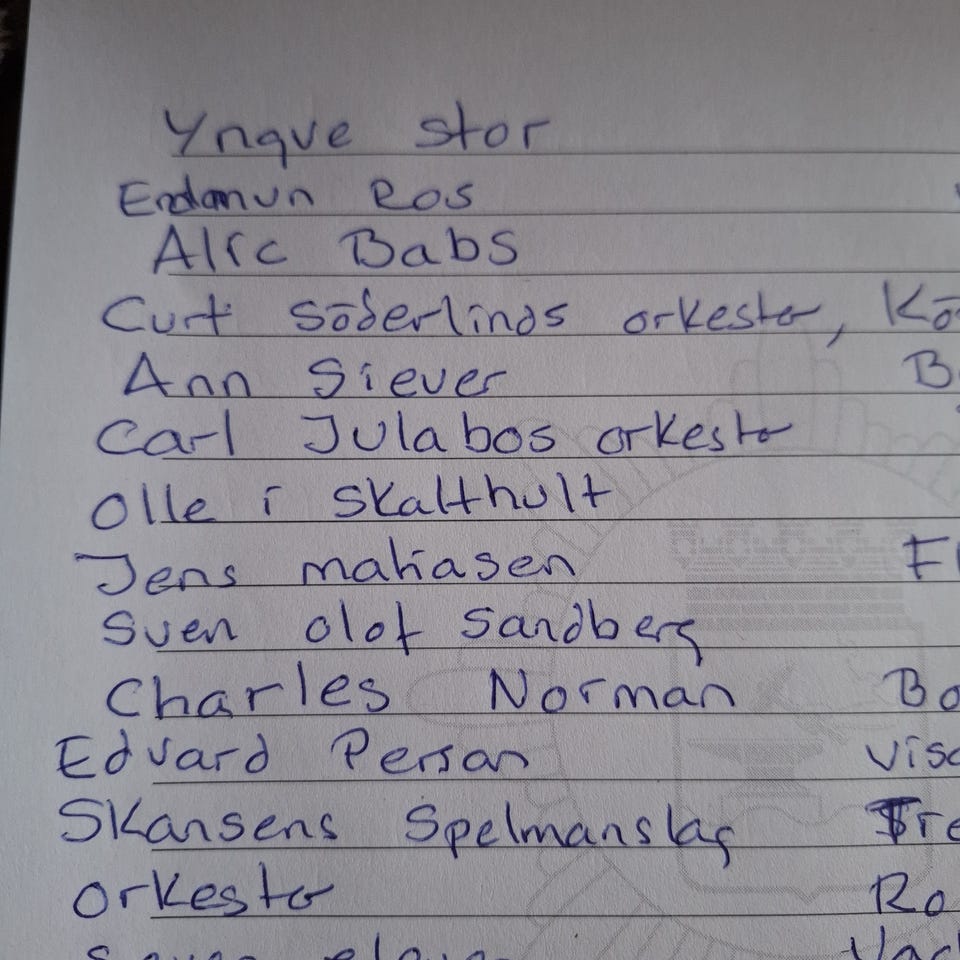 Yngve stor
Endamun Ros
Alic Babs
Curt Söderlinds orkester, Kö
Ann Siever B
Carl Julabos orkester
Olle i Skalthult
Jens matiasen F
Sven olof Sandberg
Charles Norman Bo
Edvard Person visc
Skansens Spelmanslag Tre
orkester Ro